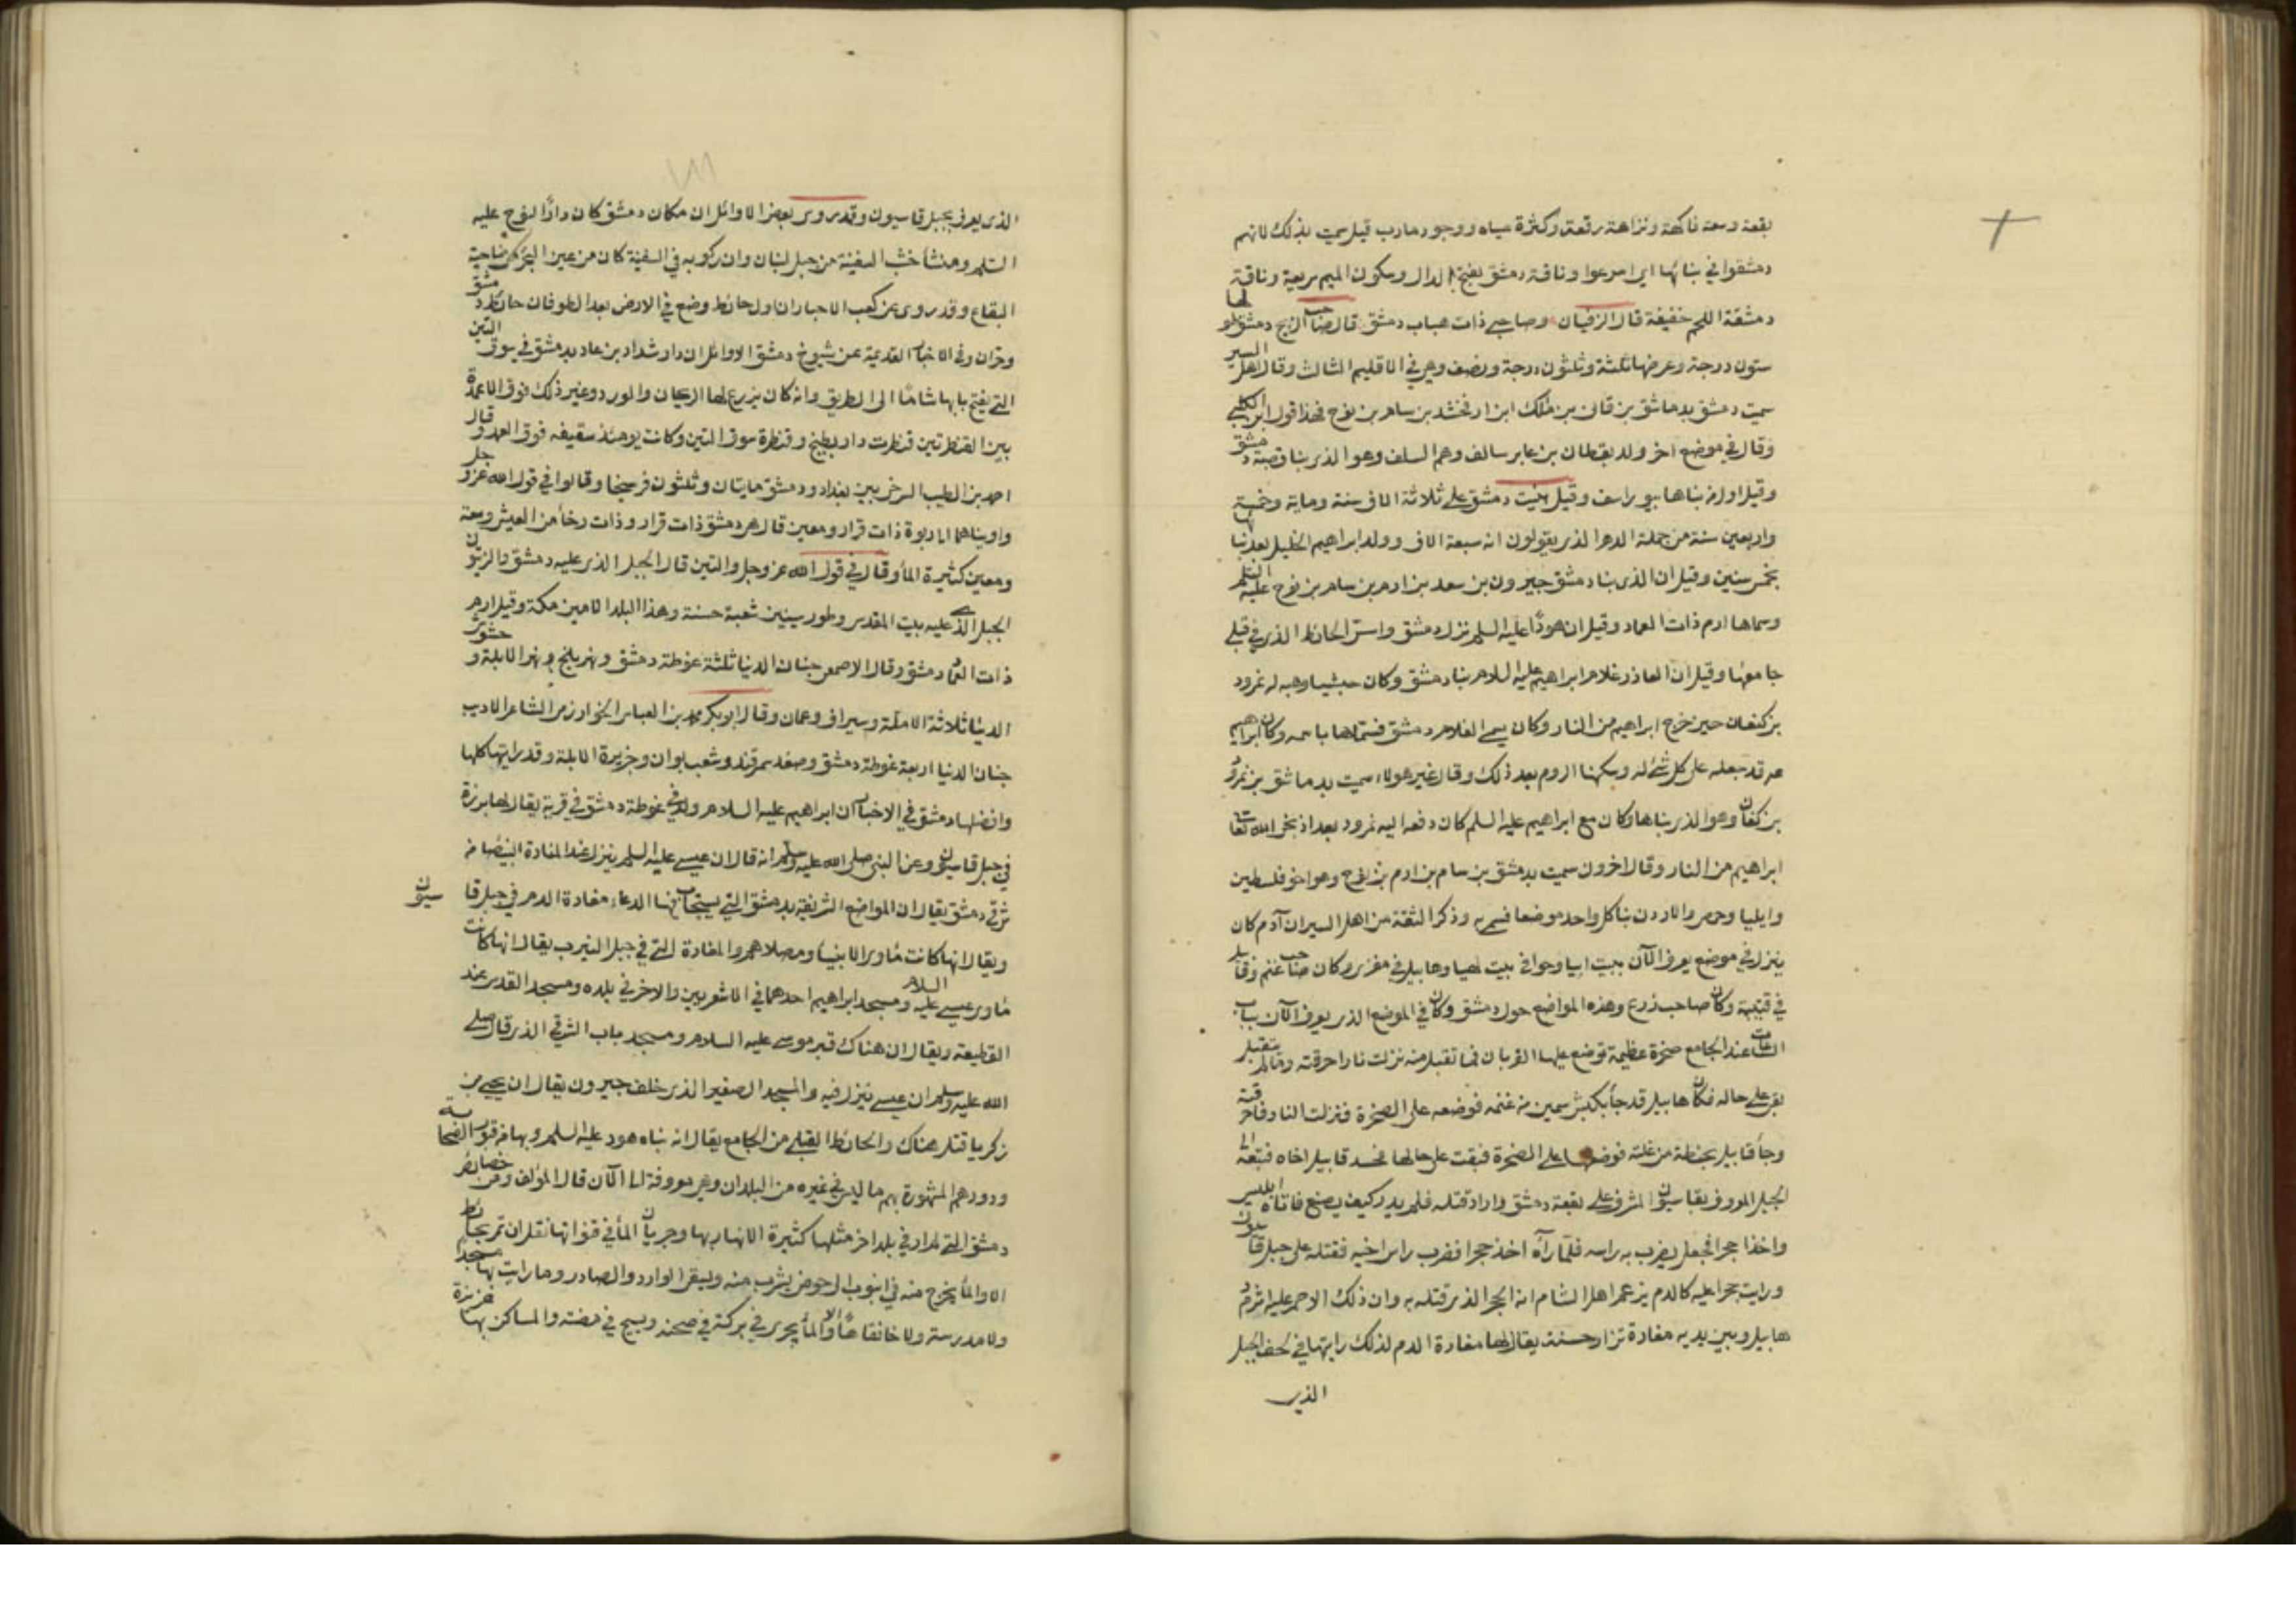 بقعة وسعة فاكهة ونزاهة رقعة وكثرة مياه ووجود مادب قيل سميت بذلك لانهم
دمشقوا في بنائها اي اسرعوا وناقة دمشق بفتح الدال وسكون الميم سريعة وناقة
دمشقة اللحم خفيفة قال الزفيان وصاحبي ذات هباب دمشق قال صاحب الزيج دمشق طولها
ستون درجة وعرضها ثلثة وثلثون درجة ونصف وهي في الاقليم الثالث وقال اهل السير
سميت دمشق بدماشق بن قان بن ملك ابن ارفخشد بن سام بن نوح فهذا قول ابن الكلبي
وقال في موضع اخر ولد يقطان بن عابر سالف وهم السلف وهو الذي بنا قصبة دمشق
وقيل اول من بناها بيوراسف وقيل بنيت دمشق على ثلاثة الاف سنة وماية وخمسة
واربعين سنة من جملة الدهر الذي يقولون انه سبعة الاف وولد ابراهيم الخليل بعد بنائها
بخمس سنين وقيل ان الذي بنا دمشق جيرون بن سعد بن ادم بن سام بن نوح عليه السلم
وسماها ارم ذات العماد وقيل ان هودًا عليه السلم نزل دمشق واسس الحائط الذي في قبلي
جامعها وقيل ان العاذر غلام ابراهيم عليه السلام بنا دمشق وكان حبشيا وهبه له نمرود
بن كنعان حين خرج ابراهيم من النار وكان يسمى الغلام دمشق فسماها باسمه وكان ابراهيم
عم قد جعله على كل شئ له وسكنها الروم بعد ذلك وقال غير هولاء سميت بدماشق بن نمرود
بن كنعان وهو الذي بناها وكان مع ابراهيم عليه السلم كان دفعه اليه نمرود بعد اذ نجى الله تعا
ابراهيم من النار وقال اخرون سميت بدمشق بن سام بن ارم بن نوح وهو اخو فلسطين
وايليا وحمص والاردن بنا كل واحد موضعا فسمى به وذكر الثقة من اهل السير ان آدم كان
ينزل في موضع يعرف الآن ببيت ابيا وحوا في بيت لهيا وهابيل في مقرى وكان صاحب غنم وقابيل
في قنينة وكان صاحب زرع وهذه المواضع حول دمشق وكان في الموضع الذي يعرف الآن بباب
الساعات عند الجامع صخرة عظيمة توضع عليها القربان فما تقبل منه نزلت نار احرقته وما لم يتقبل
بقى على حاله فكان هابيل قد جأ بكبش سمين من غنمه فوضعه على الصخرة فنزلت النار فاحرقته
وجأ قابيل بحنطة من غلته فوضعها على الصخرة فبقت على حالها فحسد قابيل اخاه فتبعه الى
الجبل المعروف بقاسيون المشرف على بقعة دمشق واراد قتله فلم يدر كيف يصنع فاتاه ابليس
واخذا حجرا فجعل يضرب به راسه فلما رآه اخذ حجرا فضرب راس اخيه فقتله على جبل قاسيون
ورايت حجرا عليه كالدم يزعم اهل الشام انه الحجر الذي قتله به وان ذلك الاحمر عليه اثر دم
هابيل وبين يديه مغارة تزار حسنة يقال لها مغارة الدم لذلك رايتها في لحف الجبل
الذي
الذي يعرف بجبل قاسيون وقد روى بعض الاوائل ان مكان دمشق كان دارًا لنوح عليه
السلم ومنشأ خشب السفينة من جبل لبنان وان ركوبه في السفينة كان من عين الجر من ناحية
البقاع وقد روى عن كعب الاحبار ان اول حائط وضع في الارض بعد الطوفان حائط دمشق
وحران وفي الاخبار القديمة عن شيوخ دمشق الاوائل ان دار شداد بن عاد بدمشق في سوق التين
التي يفتح بابها شامًا الى الطريق وانه كان يزرع لها الريحان والورد وغير ذلك فوق الاعمدة
بين القنطرتين قنطرت دار بطيخ وقنطرة سوق التين وكانت يومئذ سقيفه فوق العمد وقال
احمد بن الطيب السرخسي بين بغداد ودمشق مايتان وثلثون فرسخا وقالوا في قول الله عز وجل
واويناهما الى ربوة ذات قرار ومعين قال هي دمشق ذات قرار وذات رخأ من العيش وسعة
ومعين كثيرة المأ وقال في قول الله عز وجل والتين قال الجبل الذي عليه دمشق والزيتون
الجبل الذي عليه بيت المقدس وطور سينين شعبة حسنة وهذا البلد الامين مكة وقيل ارم
ذات العماد دمشق وقال الاصمعي جنان الدنيا ثلثة غوطة دمشق ونهر بلخ ونهر الابلة وحشوش
الدنيا ثلاثة الابلة وسيراف وعمان وقال ابو بكر محمد بن العباس الخوارزمي الشاعر الاديب
جنان الدنيا اربعة غوطة دمشق وصغد سمرقند وشعب بوان وجزيرة الابلة وقد رايتها كلها
وافضلها دمشق في الاخبار ان ابراهيم عليه السلام ولد في غوطة دمشق في قرية يقال لها برزة
في جبل قاسيون وعن النبي صلى الله عليه وسلم انه قال ان عيسى عليه السلم ينزل عند المنارة البيضا من
شرقي دمشق يقال ان المواضع الشريفة بدمشق التي يستجاب فيها الدعاء مغارة الدم في جبل قاسيون
ويقال انها كانت مأوى الانبيأ ومصلاهم والمغارة التي في جبل النيرب يقال انها كانت
مأوى عيسى عليه السلام ومسجد ابراهيم احدهما في الاشعريين والاخر في بلده ومسجد القدم عند
القطيعة ويقال ان هناك قبر موسى عليه السلام ومسجد باب الشرقي الذي قال صلى
الله عليه وسلم ان عيسى ينزل فيه والمسجد الصغير الذي خلف جيرون يقال ان يحيى بن
زكريا قتل هناك والحائط القبلي من الجامع يقال انه بناه هود عليه السلم وبها من قبور الصحابة
ودورهم المشهورة بهم ما ليس في غيره من البلدان وهي معروفة الى الآن قال المؤلف ومن خصائص
دمشق التي لم ار في بلد اخر مثلها كثيرة الانهار بها وجريان المأ في قنواتها فقل ان تمر بحائط
الا والمأ يخرج منه في انبوب الى حوض يشرب منه ويسقي الوارد والصادر وما رايت بها مسجدا
ولا مدرسة ولا خانقاهًا الا والمأ يجري في بركة في صحنه ويسيح في ميضته والمساكن بها عزيزة